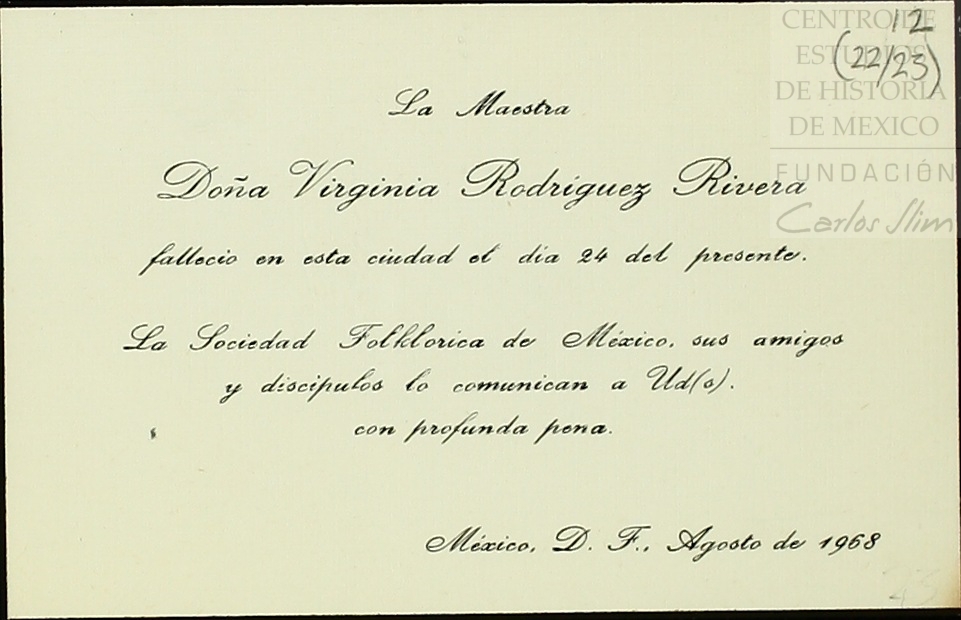 CENTRO DE
ESTUDIOS
DE HISTORIA
DE MEXICO
FUNDACIÓN
Carlos Slim
12
(22/23)
La Maestra
Doña Virginia Rodríguez Rivera
fallecio en esta ciudad el dia 24 del presente.
La Sociedad Folklorica de México, sus amigos
y discipulos lo comunican a Ud(s).
con profunda pena.
México, D. F., Agosto de 1968